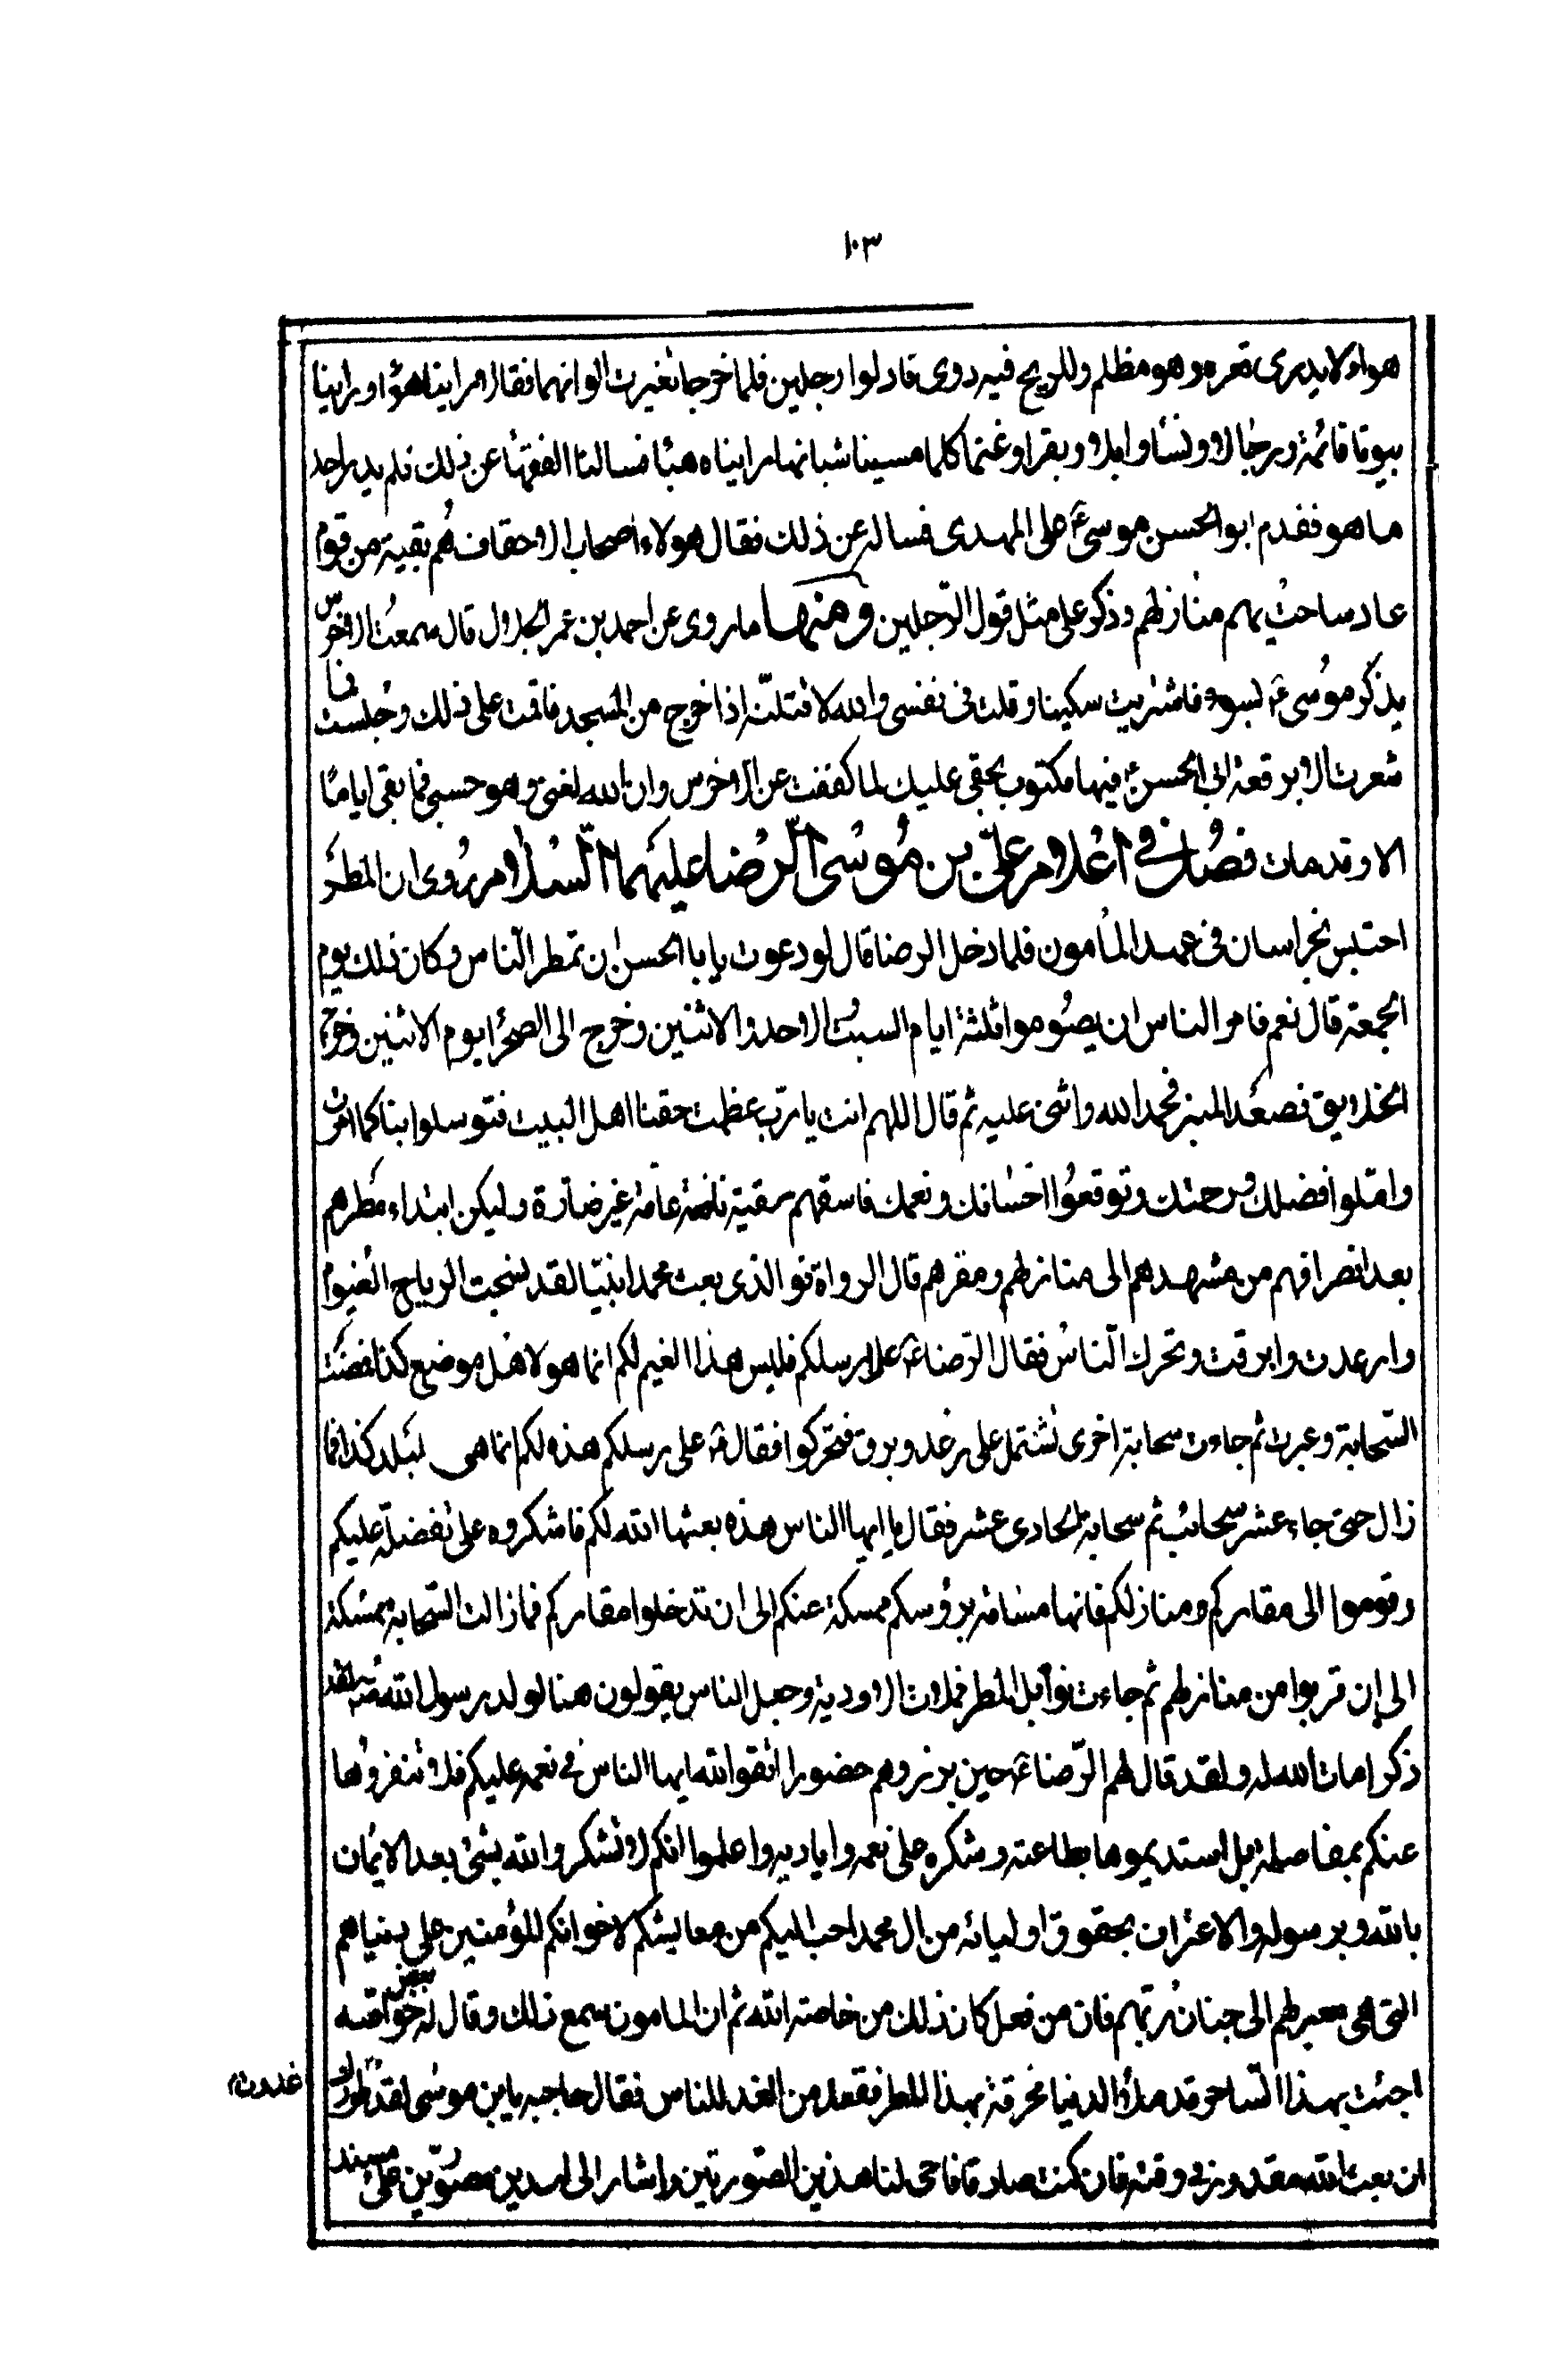 ١٠٣
هواء لا يدرى قعره وهو مظلم وللريح فيه دوى فادلوا رجلين فلما خرجا تغيرت الوانهما فقالا راينا هواء وراينا
بيوتا قائمة ورجالا ونساء وابلا وبقرا وغنما كلما مسسنا شيا منها رايناه هباء فسالنا الفقهاء عن ذلك فلم يدر احد
ما هو فقدم ابو الحسن موسىؑ على المهدى فساله عن ذلك فقال هولاء اصحاب الاحقاف هم بقية من قوم
عاد ساخت بهم منازلهم وذكر على مثل قول الرجلين ومنها ما روى عن احمد بن عمر الحلال قال سمعت الاخرس
يذكر موسىؑ بسوء فاشتريت سكينا وقلت فى نفسى والله لاقتلنه اذا خرج من المسجد فاقمت على ذلك وجلست فما
شعرت الا برقعة ابى الحسنؑ فيها مكتوب بحقى عليك لما كففت عن الاخرس وان الله لغنى وهو حسبى فما بقى اياما
الا وقد مات فصل فى اعلام على بن موسى الرضا عليهما السلام روى ان المطر
احتبس بخراسان فى عهد المأمون فلما دخل الرضا قال لو دعوت يا ابا الحسن ان تمطر الناس وكان ذلك يوم
الجمعة قال نعم فامر الناس ان يصوموا ثلثة ايام السبت الاحد والاثنين وخرج الى الصحراء يوم الاثنين وخرج
الخلايق فصعد المنبر فحمد الله واثنى عليه ثم قال اللهم انت يا رب عظمت حقنا اهل البيت فتوسلوا بنا كما امرت
واملوا فضلك ورحمتك وتوقعوا احسانك ونعمك فاسقهم سقيا نافعة عامة غير ضارة وليكن ابتداء مطرهم
بعد انصرافهم من مشهدهم الى منازلهم ومقرهم قال الرواة فو الذى بعث محمدا نبيا لقد نسجت الرياح الغيوم
وارعدت وابرقت وتحرك الناس فقال الرضاؑ على رسلكم فليس هذا الغيم لكم انما هو لاهل موضع كذا فمضت
السحابة وعبرت ثم جاءت سحابة اخرى تشتمل على رعد وبرق فتحركوا فقالؑ على رسلكم هذه لكم انما هى لبلد كذا فما
زال حتى جاء عشر سحائب ثم سحابة الحادى عشر فقال يا ايها الناس هذه بعثها الله لكم فاشكروه على تفضله عليكم
وقوموا الى مقاركم ومنازلكم فانها مسامتة برؤسكم ممسكة عنكم الى ان تدخلوا مقاركم فما زالت السحابة ممسكة
الى ان قربوا من منازلهم ثم جاءت بوابل المطر فملات الاودية وجعل الناس يقولون هنيئا لولد رسول الله
كرامات الله له ولقد قال لهم الرضاؑ حين برز وهم حضور اتقوا الله ايها الناس فى نعمه عليكم فلا تنفروها
عنكم بمعاصيه بل استديموها بطاعته وشكره على نعمه واياديه واعلموا انكم لا تشكروا الله بشئ بعد الايمان
بالله وبرسوله والاعتراف بحقوق اوليائه من ال محمد احب اليكم من معايشكم لاخوانكم المؤمنين على دنياهم
التى هى معبر لهم الى جنان ربهم فان من فعل كان ذلك من خاصة الله ثم ان المامون سمع ذلك وقال له بعض خواصه
اجئت بهذا الساحر وقد ملأ الدنيا مخرقة بهذا المطر فقعد من الغد للناس فقال حاجبه يا بن موسى لقد طورك
غدوت
ان بعث الله مقدور فى وقته فان كنت صادقا فاحى لنا هذين الصورتين واشار الى اسدين مصورين على مسند